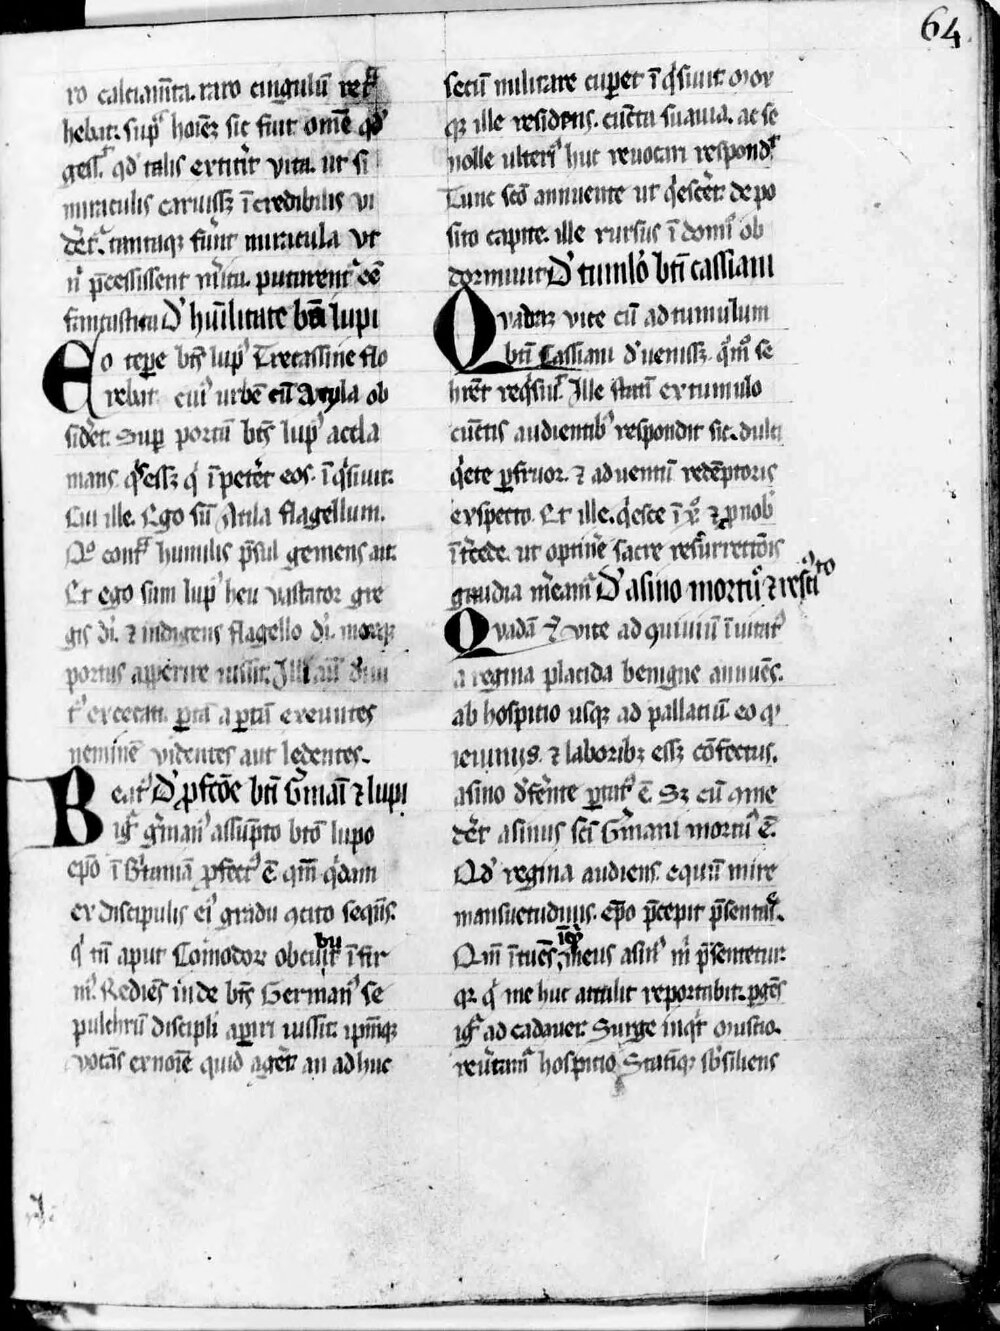 64
ro calciam̄ta. raro cingulū ret̄
hebat. supꝰ hoīez sic fuit om̄e qđ
gess̄. qđ talis extitit̄ vita. ut si
miraculis caruissꝫ īcredibilis vi
đet̄. tantaqꝫ fūnt miracula vt
n̄ p̄cessissent m̄ita. putarent̄ eē
fantastica Đ hūilitate bt̄i lupi
Eo tēpe bt̄s lupꝰ Trecassine flo
rebat. cuiꝰ urbē cū Atyla ob
sidet̄. Sup portā bt̄s lupꝰ accla
mans. qͥs eēssꝫ qͥ īpetet̄ eos. īqͥsiuit.
Cui ille. Ego sū Atila flagellum.
Qͦ cont̄ humilis p̄sul gemens ait.
Et ego sum lupꝰ heu vastator gre
gis dī. ⁊ indigens flagello dī. moxqꝫ
portas apperire iussit. Illi aūt diui
tꝰ excecati. ꝑ portā a portā exeuntes
neminē videntes aut ledentes.
Beatꝰ Đ ꝓfcōe bt̄i Ḡmāi ⁊ lupi
igͥ ḡmanꝰ assūpto bt̄o lupo
ep̄o ī Bͥtaniā ꝓfectꝰ ē qm̄ qͥdam
ex discipulis eiꝰ gradu ꝯcito seqͥns.
qͥ tn̄ aput Tornodoꝝ obcubuit īfir
mꝰ. Rediēs inde bt̄s Germanꝰ se
pulchrū discipli aꝑiri iussit. ipm̄qꝫ
vocās ex noīe quid aget̄. an adhuc
secū militare cuꝑet īqͥsiuit. Mox
qꝫ ille residens. cūcta suauia. ac se
nolle ulteriꝰ huc reuocari respondͭ
Tunc scō annuente ut qͥescet̄. depo
sito capite. ille rursus ī domͥo ob
dormiuit Đ tumlo bt̄i cassiani
Quadaꝫ vice cū ad tumulum
bt̄i Cassiani deuenissꝫ. qͦm̄ se
hrēt reqͥsiuit. Ille statī ex tumulo
cūctis audientibꝰ respondit sic. dulci
qͥete ꝑfruor. ⁊ aduentū redēptoris
exspecto. Et ille. qͥesce ī xͦ ⁊ ꝓ nob̄
ītͥcede. ut optine sacre resurrectiōis
gaudia m̄eam̄ Đ asino mortuͦ ⁊ resciͭto
Quadā ⁊ vice ad ꝯuiuiū īuitatꝰ
a regina placida benigne annuēs.
ab hospitio usqꝫ ad pallatiū. eo qͥ
ieiuniis. ⁊ laboribꝫ essꝫ cōfectus.
asino đferente ꝑtatꝰ ē Sꝫ cū ꝯme
đet̄ asinus scī Ḡmani mortuꝰ ē.
Qđ regina audiens. equū mire
mansuetudinis. ep̄o p̄cepit p̄sentari.
Qm̄ ītuēs īqͥt meus asinꝰ m̄ p̄sentetur.
qꝛ qͥ me huc attulit reportabit. ꝑgēs
igͥ ad cadauer. Surge inqͥt Musio.
reu̓tam̄ hospitio Statīqꝫ s̄bsiliens